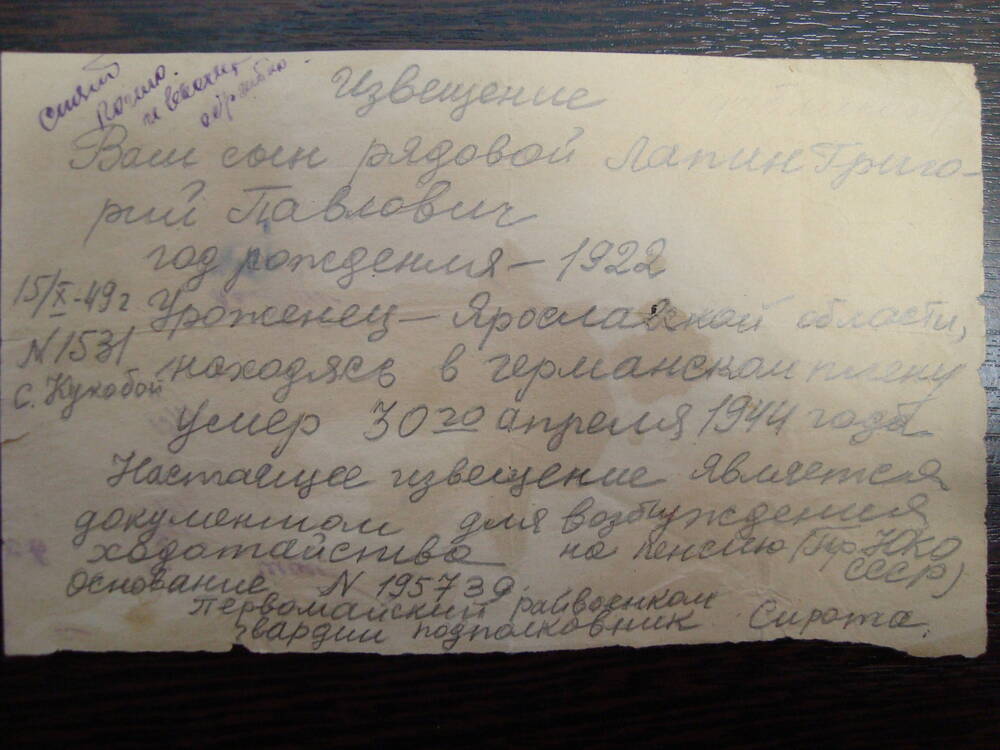 снять
копию.
и
обратно.
Извещение
Ваш сын рядовой Лапин Григо-
рий Павлович
год рождения — 1922
15/X-49 г Уроженец — Ярославской области,
N 1531 находясь в германском плену
с. Кукобой умер 30го апреля 1944 года
Настоящее извещение является
документом для возбуждения
ходотайства на пенсию (Пр. НКО
СССР)
Основание N 195739.
Первомайский райвоенком
гвардии подполковник Сирота.